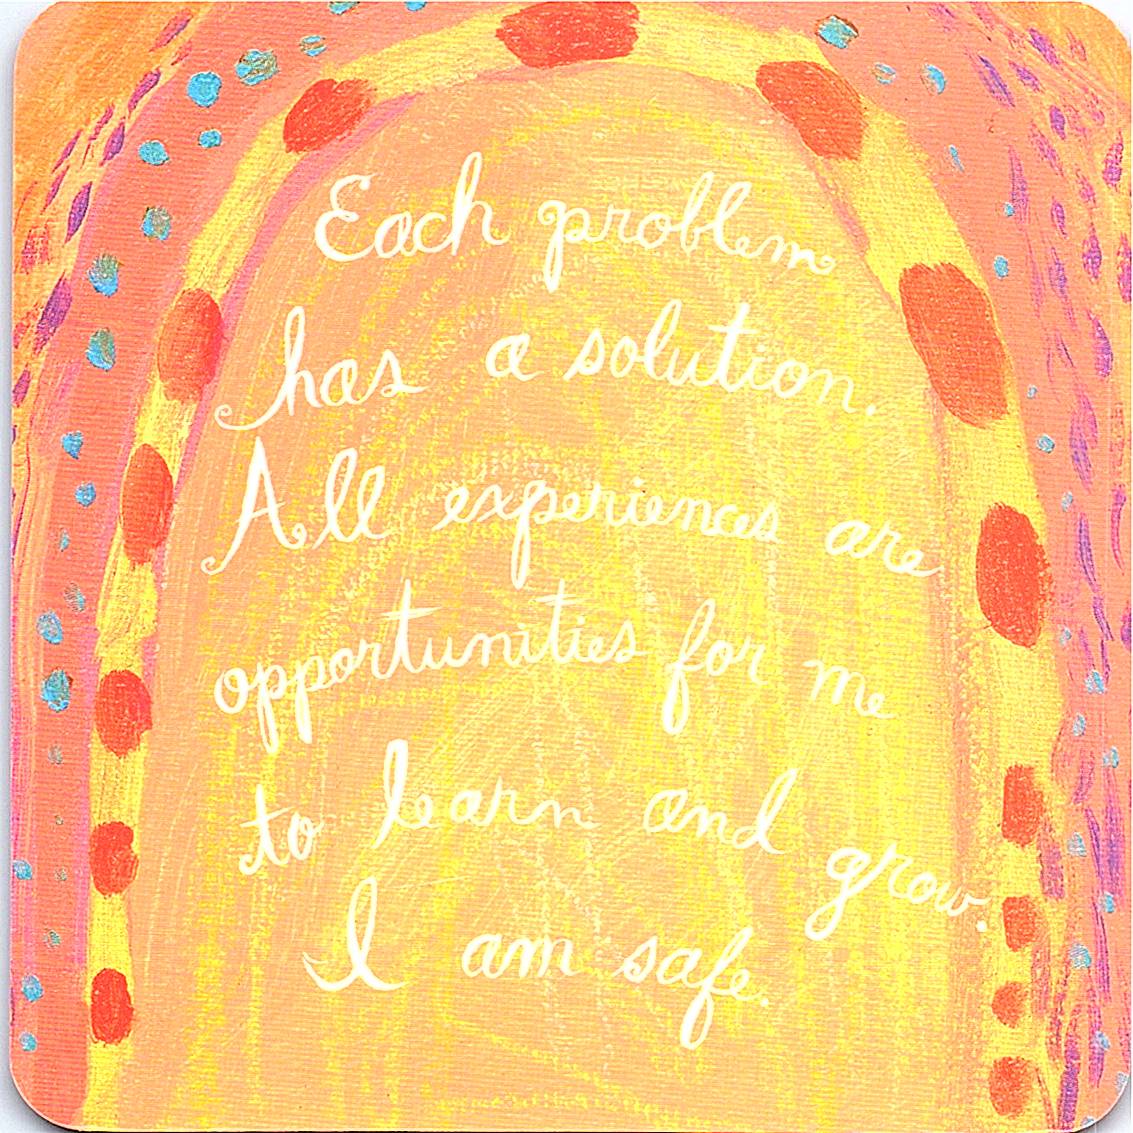 Each problem
has a solution.
All experiences are
opportunities for me
to learn and grow.
I am safe.